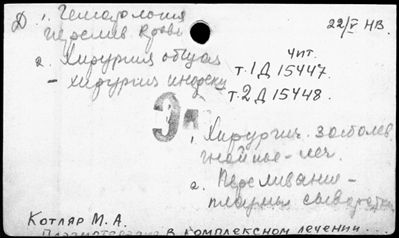 Д 1. Гематология
перелив. крови
22/V НВ.
2. Хирургия общая
- хирургия
чит.
т.1 Д 15447.
т.2 Д 15448.
Эл
1. Хирургич. заболев.
гнойные - леч.
2. Переливание -
плазмы сыворотки
Котляр М. А.
в комплексном лечении ...